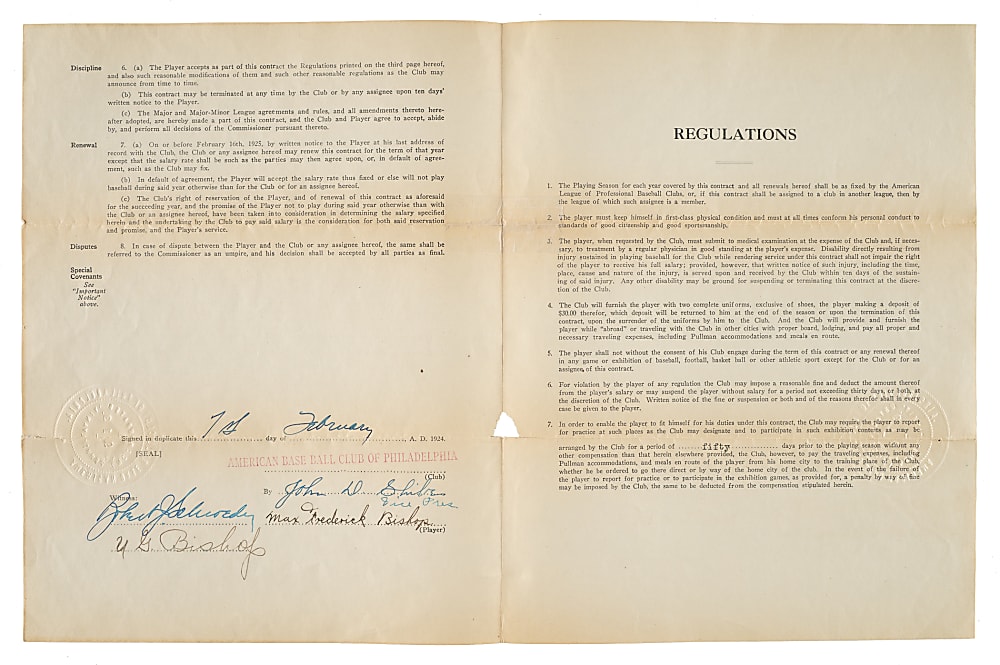 Discipline 6. (a) The Player accepts as part of this contract the Regulations printed on the third page hereof,
and also such reasonable modifications of them and such other reasonable regulations as the Club may
announce from time to time.
(b) This contract may be terminated at any time by the Club or by any assignee upon ten days'
written notice to the Player.
(c) The Major and Major-Minor League agreements and rules, and all amendments thereto here-
after adopted, are hereby made a part of this contract, and the Club and Player agree to accept, abide
by, and perform all decisions of the Commissioner pursuant thereto.
Renewal 7. (a) On or before February 16th, 1925, by written notice to the Player at his last address of
record with the Club, the Club or any assignee hereof may renew this contract for the term of that year
except that the salary rate shall be such as the parties may then agree upon, or, in default of agree-
ment, such as the Club may fix.
(b) In default of agreement, the Player will accept the salary rate thus fixed or else will not play
baseball during said year otherwise than for the Club or for an assignee hereof.
(c) The Club's right of reservation of the Player, and of renewal of this contract as aforesaid
for the succeeding year, and the promise of the Player not to play during said year otherwise than with
the Club or an assignee hereof, have been taken into consideration in determining the salary specified
herein and the undertaking by the Club to pay said salary is the consideration for both said reservation
and promise, and the Player's service.
Disputes 8. In case of dispute between the Player and the Club or any assignee hereof, the same shall be
referred to the Commissioner as an umpire, and his decision shall be accepted by all parties as final.
Special
Covenants
See
"Important
Notice"
above.
Signed in duplicate this day of February A. D. 1924.
[SEAL]
AMERICAN BASE BALL CLUB OF PHILADELPHIA
(Club)
By John D. Shibe
Vice Pres
Witness:
Max Frederick Bishop
(Player)
Bishop
REGULATIONS
1. The Playing Season for each year covered by this contract and all renewals hereof shall be as fixed by the American
League of Professional Baseball Clubs, or, if this contract shall be assigned to a club in another league, then by
the league of which such assignee is a member.
2. The player must keep himself in first-class physical condition and must at all times conform his personal conduct to
standards of good citizenship and good sportsmanship.
3. The player, when requested by the Club, must submit to medical examination at the expense of the Club and, if neces-
sary, to treatment by a regular physician in good standing at the player's expense. Disability directly resulting from
injury sustained in playing baseball for the Club while rendering service under this contract shall not impair the right
of the player to receive his full salary; provided, however, that written notice of such injury, including the time,
place, cause and nature of the injury, is served upon and received by the Club within ten days of the sustain-
ing of said injury. Any other disability may be ground for suspending or terminating this contract at the discre-
tion of the Club.
4. The Club will furnish the player with two complete uniforms, exclusive of shoes, the player making a deposit of
$30.00 therefor, which deposit will be returned to him at the end of the season or upon the termination of this
contract, upon the surrender of the uniforms by him to the Club. And the Club will provide and furnish the
player while "abroad" or traveling with the Club in other cities with proper board, lodging, and pay all proper and
necessary traveling expenses, including Pullman accommodations and meals en route.
5. The player shall not without the consent of his Club engage during the term of this contract or any renewal thereof
in any game or exhibition of baseball, football, basket ball or other athletic sport except for the Club or for an
assignee, of this contract.
6. For violation by the player of any regulation the Club may impose a reasonable fine and deduct the amount thereof
from the player's salary or may suspend the player without salary for a period not exceeding thirty days, or both, at
the discretion of the Club. Written notice of the fine or suspension or both and of the reasons therefor shall in every
case be given to the player.
7. In order to enable the player to fit himself for his duties under this contract, the Club may require the player to report
for practice at such places as the Club may designate and to participate in such exhibition contests as may be
arranged by the Club for a period of fifty days prior to the playing season without any
other compensation than that herein elsewhere provided, the Club, however, to pay the traveling expenses, including
Pullman accommodations, and meals en route of the player from his home city to the training place of the Club,
whether he be ordered to go there direct or by way of the home city of the club. In the event of the failure of
the player to report for practice or to participate in the exhibition games, as provided for, a penalty by way of fine
may be imposed by the Club, the same to be deducted from the compensation stipulated herein.